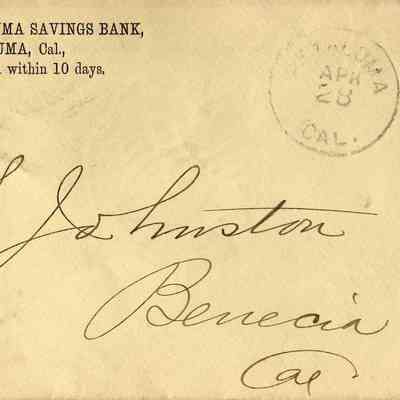 UMA SAVINGS BANK,
UMA, Cal.,
within 10 days.
PETALUMA
APR
28
CAL.
Johnston
Benecia
Cal